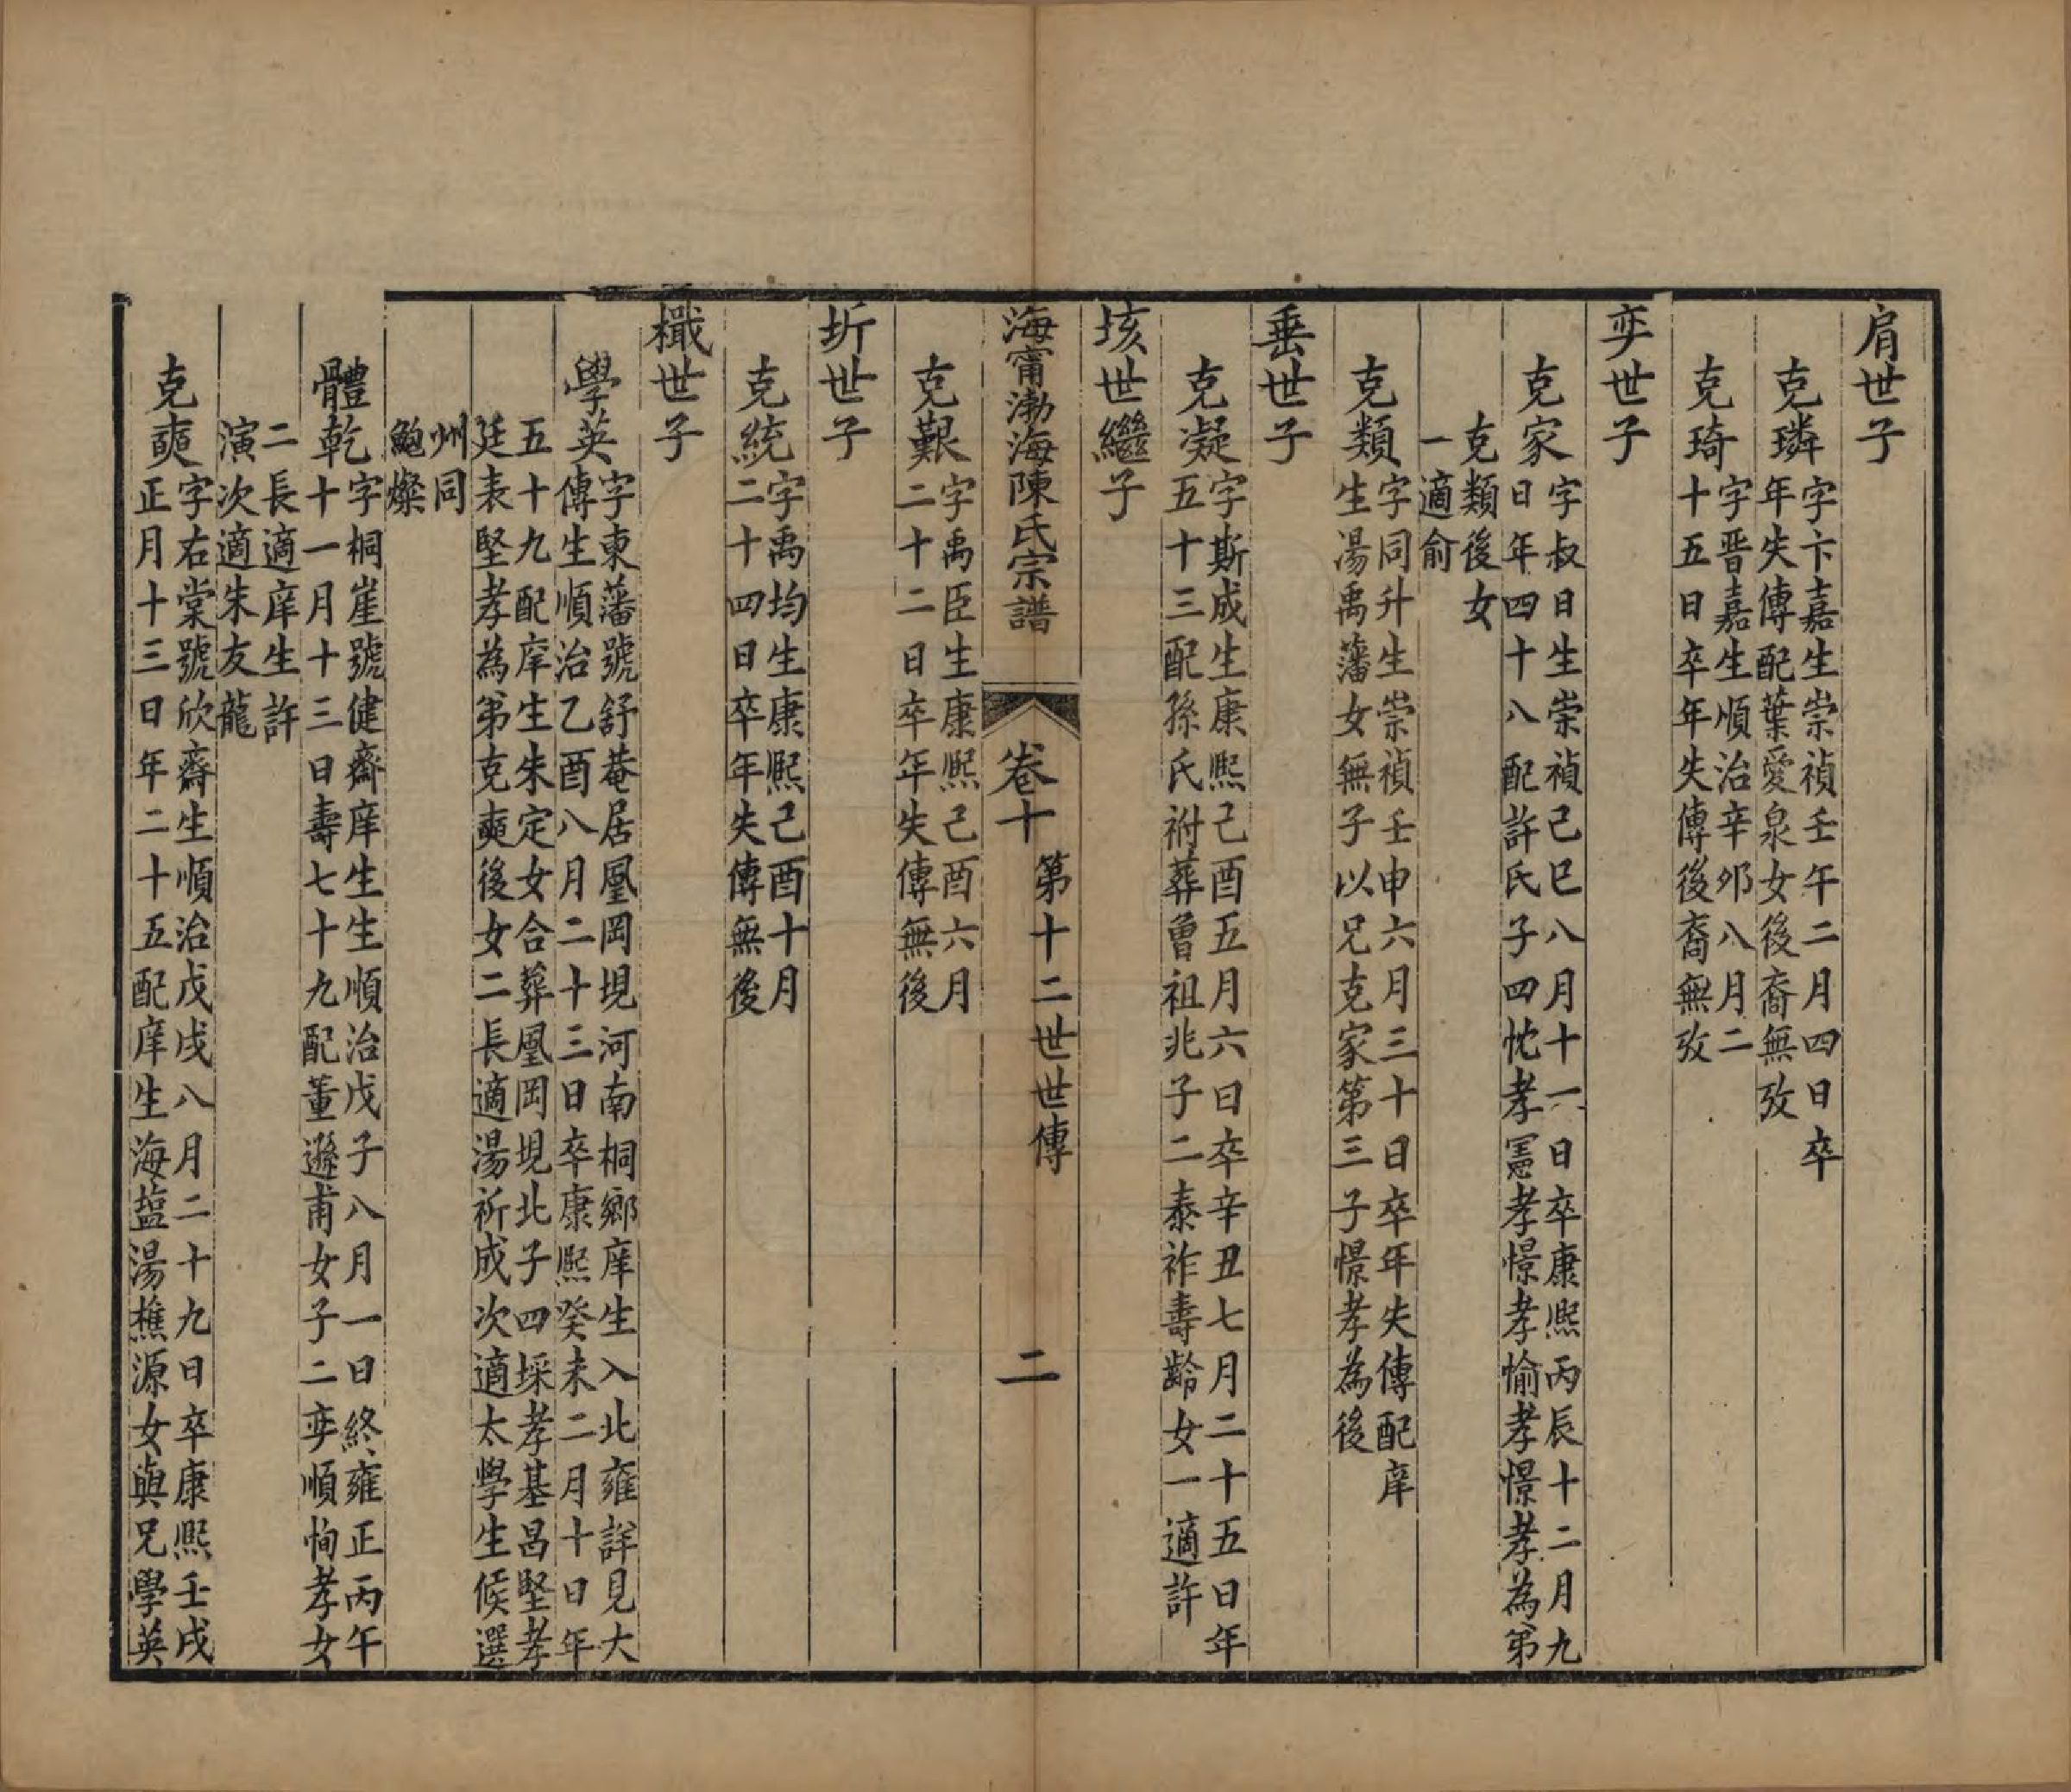 肩世子
克璘字卞嘉生崇禎壬午二月四日卒
年失傳配葉愛泉女後裔無攷
克琦字晉嘉生順治辛夘八月二
十五日卒年失傳後裔無攷
奕世子
克家字叔日生崇禎己巳八月十一日卒康熙丙辰十二月九
日年四十八配許氏子四忱孝憲孝憬孝愉孝憬孝為第
克類後女
一適俞
克類字同升生崇禎壬申六月三十日卒年失傳配庠
生湯禹藩女無子以兄克家第三子憬孝為後
垂世子
克凝字斯成生康熙己酉五月六日卒辛丑七月二十五日年
五十三配孫氏祔葬曾祖兆子二泰祚壽齡女一適許
垓世繼子
海甯渤海陳氏宗譜 卷十 第十二世世傳 二
克艱字禹臣生康熙己酉六月
二十二日卒年失傳無後
圻世子
克統字禹均生康熙己酉十月
二十四日卒年失傳無後
檝世子
學英字東藩號舒菴居凰岡堄河南桐鄉庠生入北雍詳見大
傳生順治乙酉八月二十三日卒康熙癸未二月十日年
五十九配庠生朱定女合葬凰岡堄北子四埰孝基昌堅孝
廷表堅孝為弟克奭後女二長適湯祈成次適太學生候選
州同
鮑燦
體乾字桐崖號健齋庠生生順治戊子八月一日終雍正丙午
十一月十三日壽七十九配董遜甫女子二奕順恂孝女
二長適庠生許
演次適朱友龍
克奭字右棠號欣齋生順治戊戌八月二十九日卒康熙壬戌
正月十三日年二十五配庠生海塩湯樵源女與兄學英